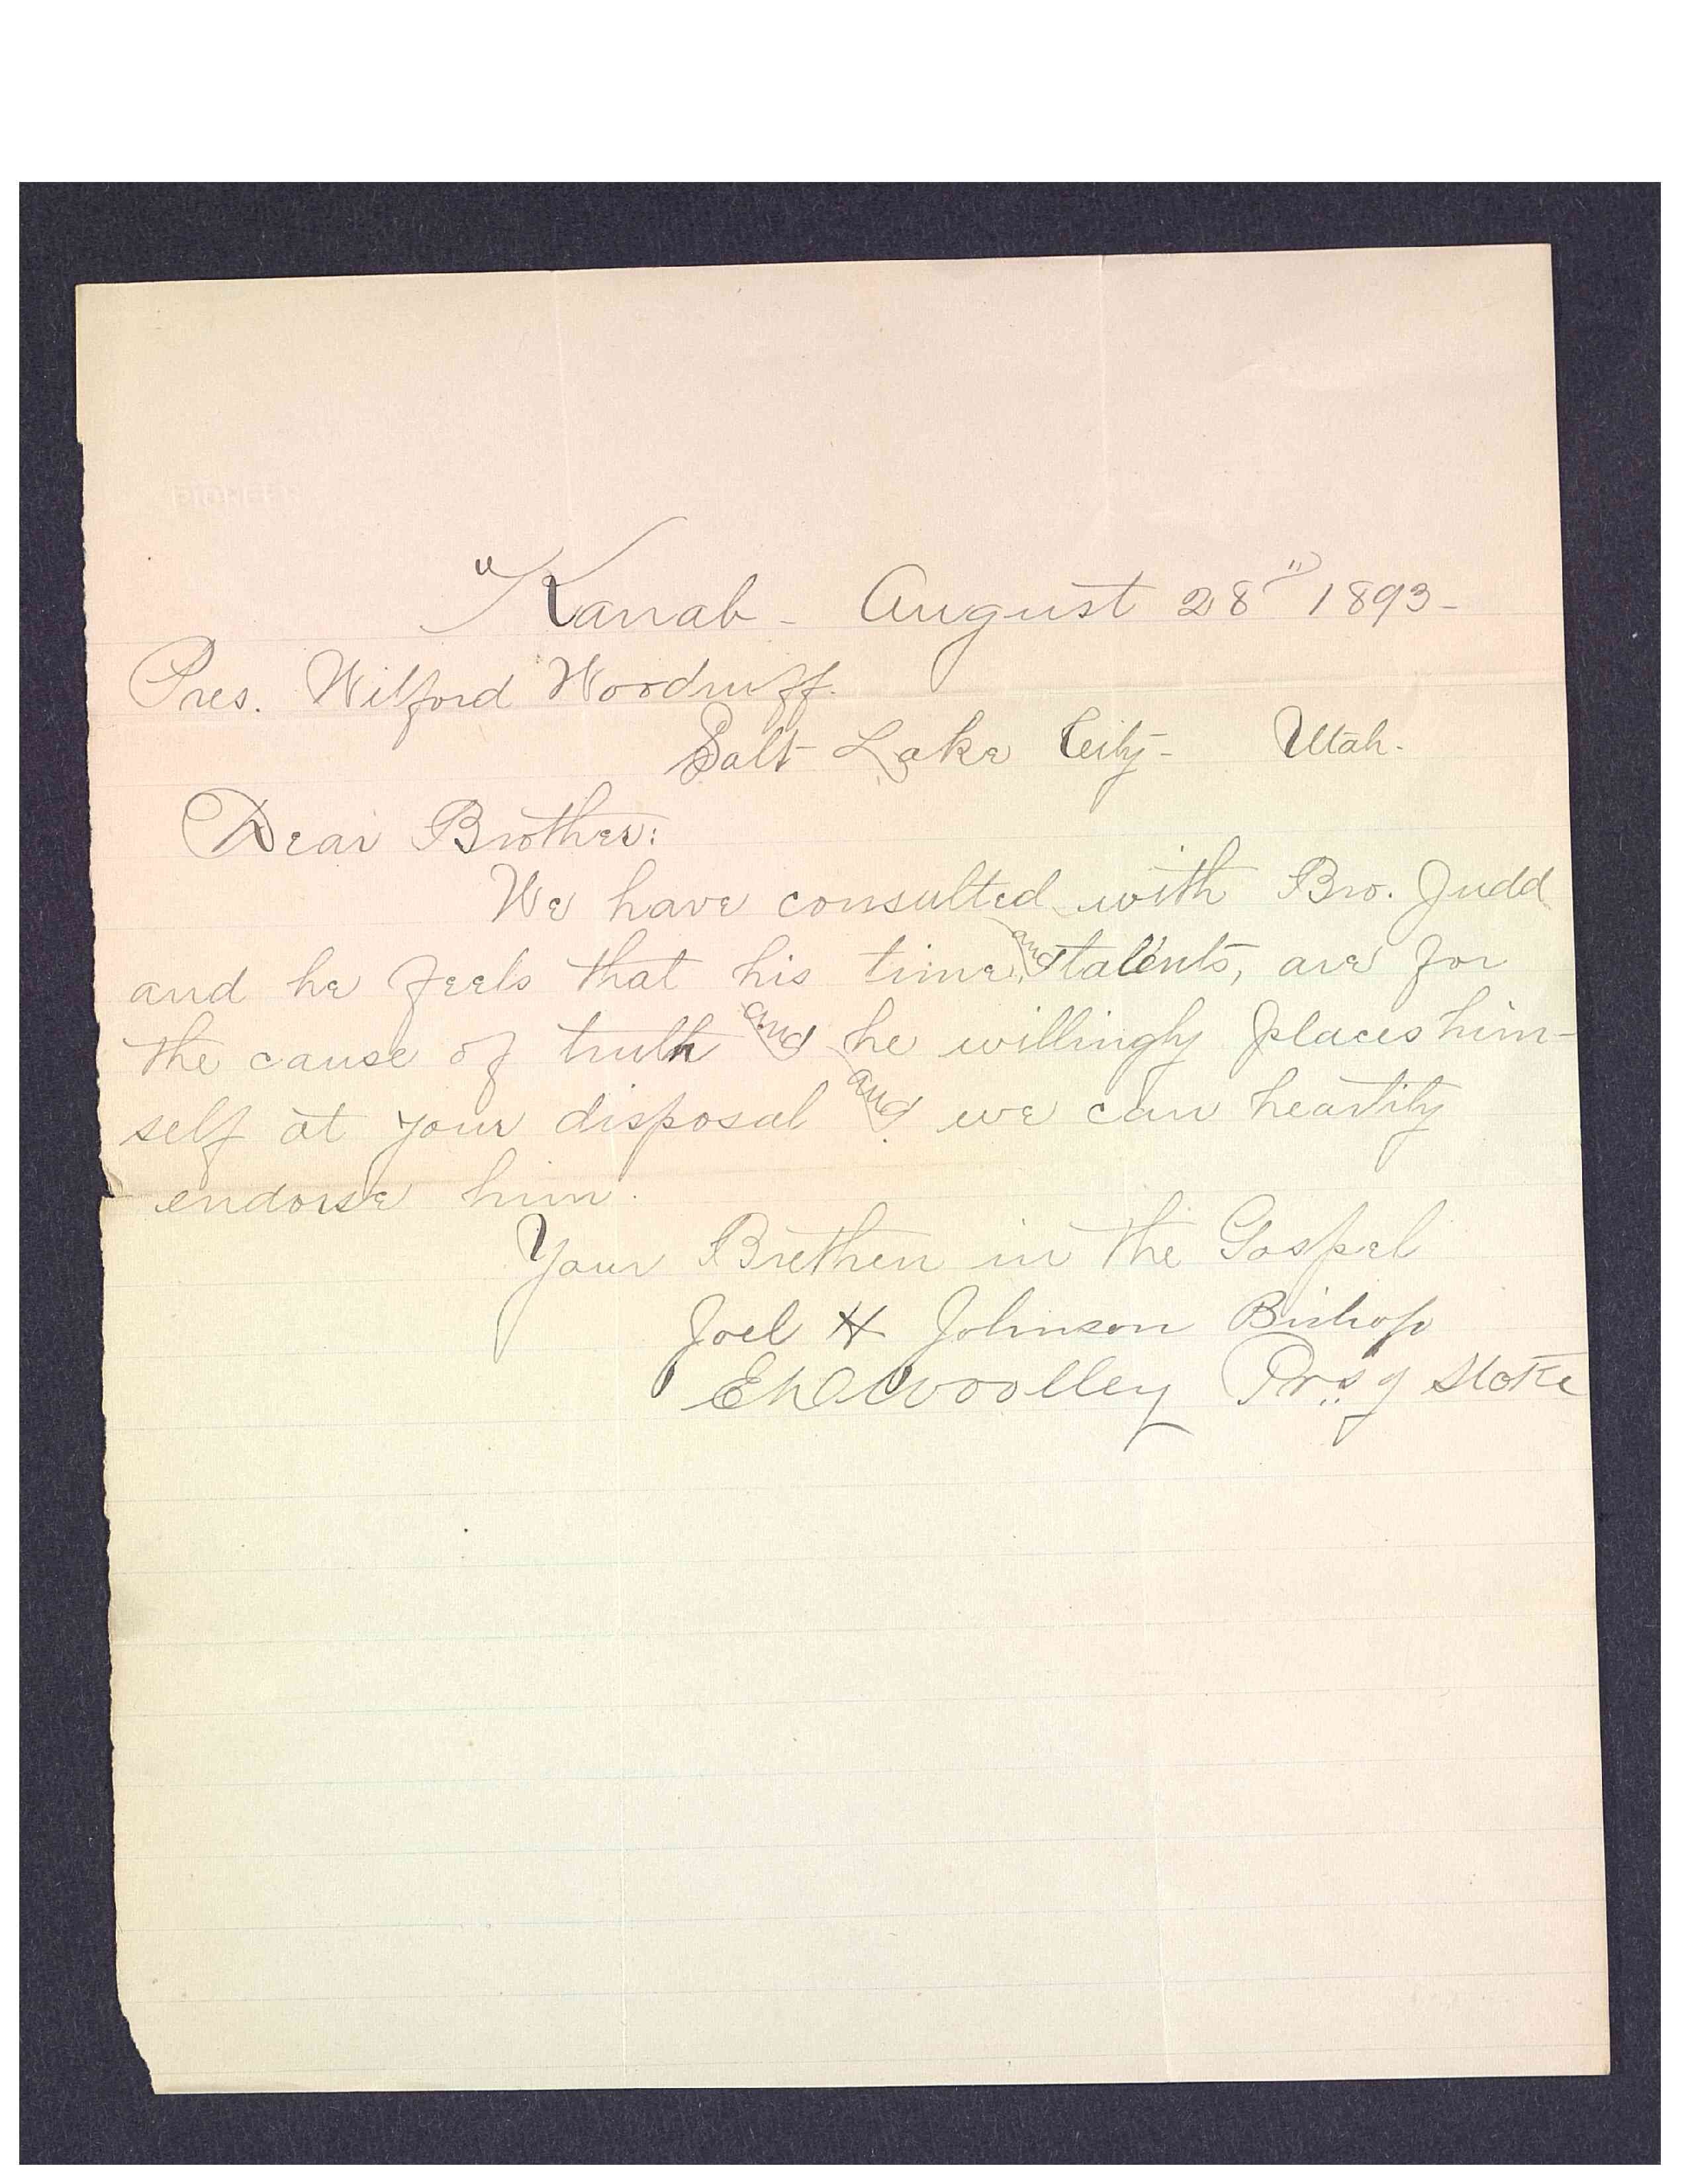 PIONEER
"Kanab - August 28" 1893-
Pres. Wilford Woodruff.
Salt Lake City- Utah.
Dear Brother:
We have consulted with Bro. Judd
and he feels that his time and talents, are for
the cause of truth and he willingly places him-
self at your disposal and we can heartily
endorse him.
Your Brethen in the Gospel
Joel H Johnson Bishop
E D Woolley Prs of Stake